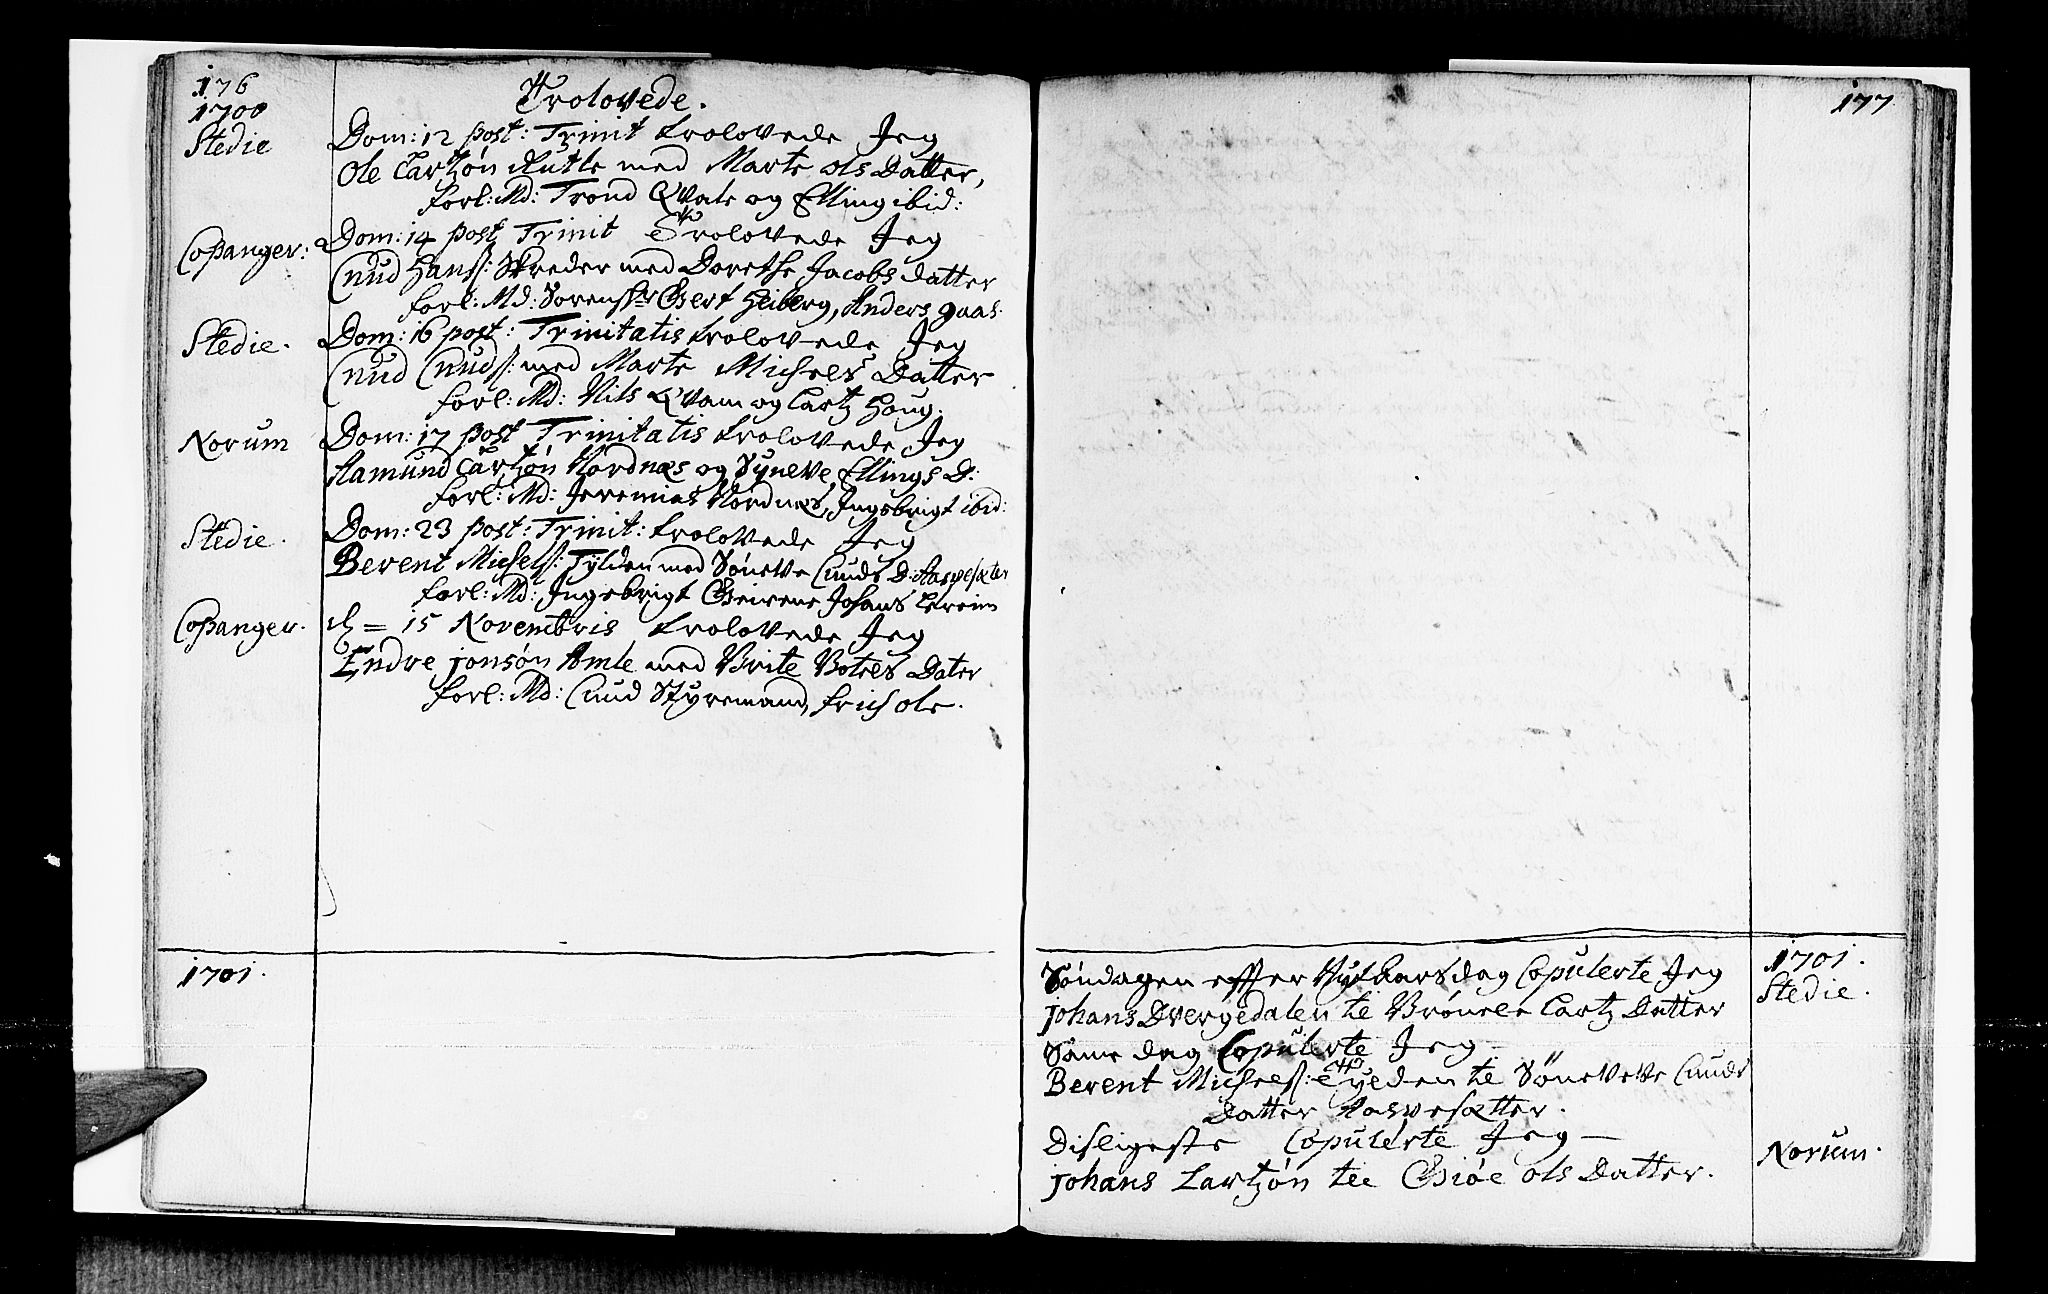 176
1700
Trolovede.
Stedie
Dom: 12 post: Trinit trolovede Jeg
Ole Lartzøn Rutle med Marte ols Datter,
forl: Md: Trond Qvale og Elling ibid:
Coßanger:
Dom: 14 post Trinit Trolovede Jeg
Cnud Hanss: Skreder med Dorethe Jacobs datter
forl: Md: Sorenskr Giert Heiberg, Anders gaas.
Stedie.
Dom: 16 post: Trinitatis trolovede Jeg
Cnud Cnuds: med Marte Michels Datter
forl: Md: Nils Qvam og Lartz Houg.
Norum
Dom: 17 post Trinitatis trolovede Jeg
Aamund Lartzøn Nordnæs og Syneve Ellings D:
forl: Md: Jeremias Nordnæs, Ingebrigt ibid:
Stedie.
Dom: 23 post: Trinit: trolovede Jeg
Berent Michels: Tylden med Søneve Cnuds D: Aaspesæter
forl: Md: Ingebrigt Johans Lereim
Coßanger.
= 15 Novembris trolovede Jeg
Endre jonsøn Amle med Brite Botels Dater
forl: Md: Cnud Styremand, ole.
1701.
177
1701.
Stedie.
Søndagen effter Nytaarsdag Copulerte Jeg
johans Dvergedalen til Brønele Lartz Datter
Same dag Copulerte Jeg —
Berent Michels: Tylden til Søneveve Cnuds
Datter Aaspesætter.
Norum.
Disligeste Copulerte Jeg —
johans Lartzøn till Giøe ols Datter.